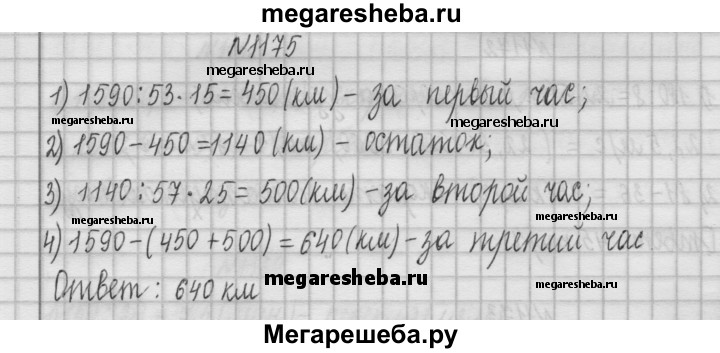 megaresheba.ru
N1175
megaresheba.ru
1) 1590:53·15=450(км)-за первый час;
megaresheba.ru
megaresheba.ru
2) 1590-450=1140(км)-остаток;
3) 1140:57·25=500(км)-за второй час;
megaresheba.ru
megaresheba.ru
4) 1590-(450+500)=640(км)-за третий час
Ответ: 640 км
megaresheba.ru
megaresheba.ru
Мегарешеба.ру